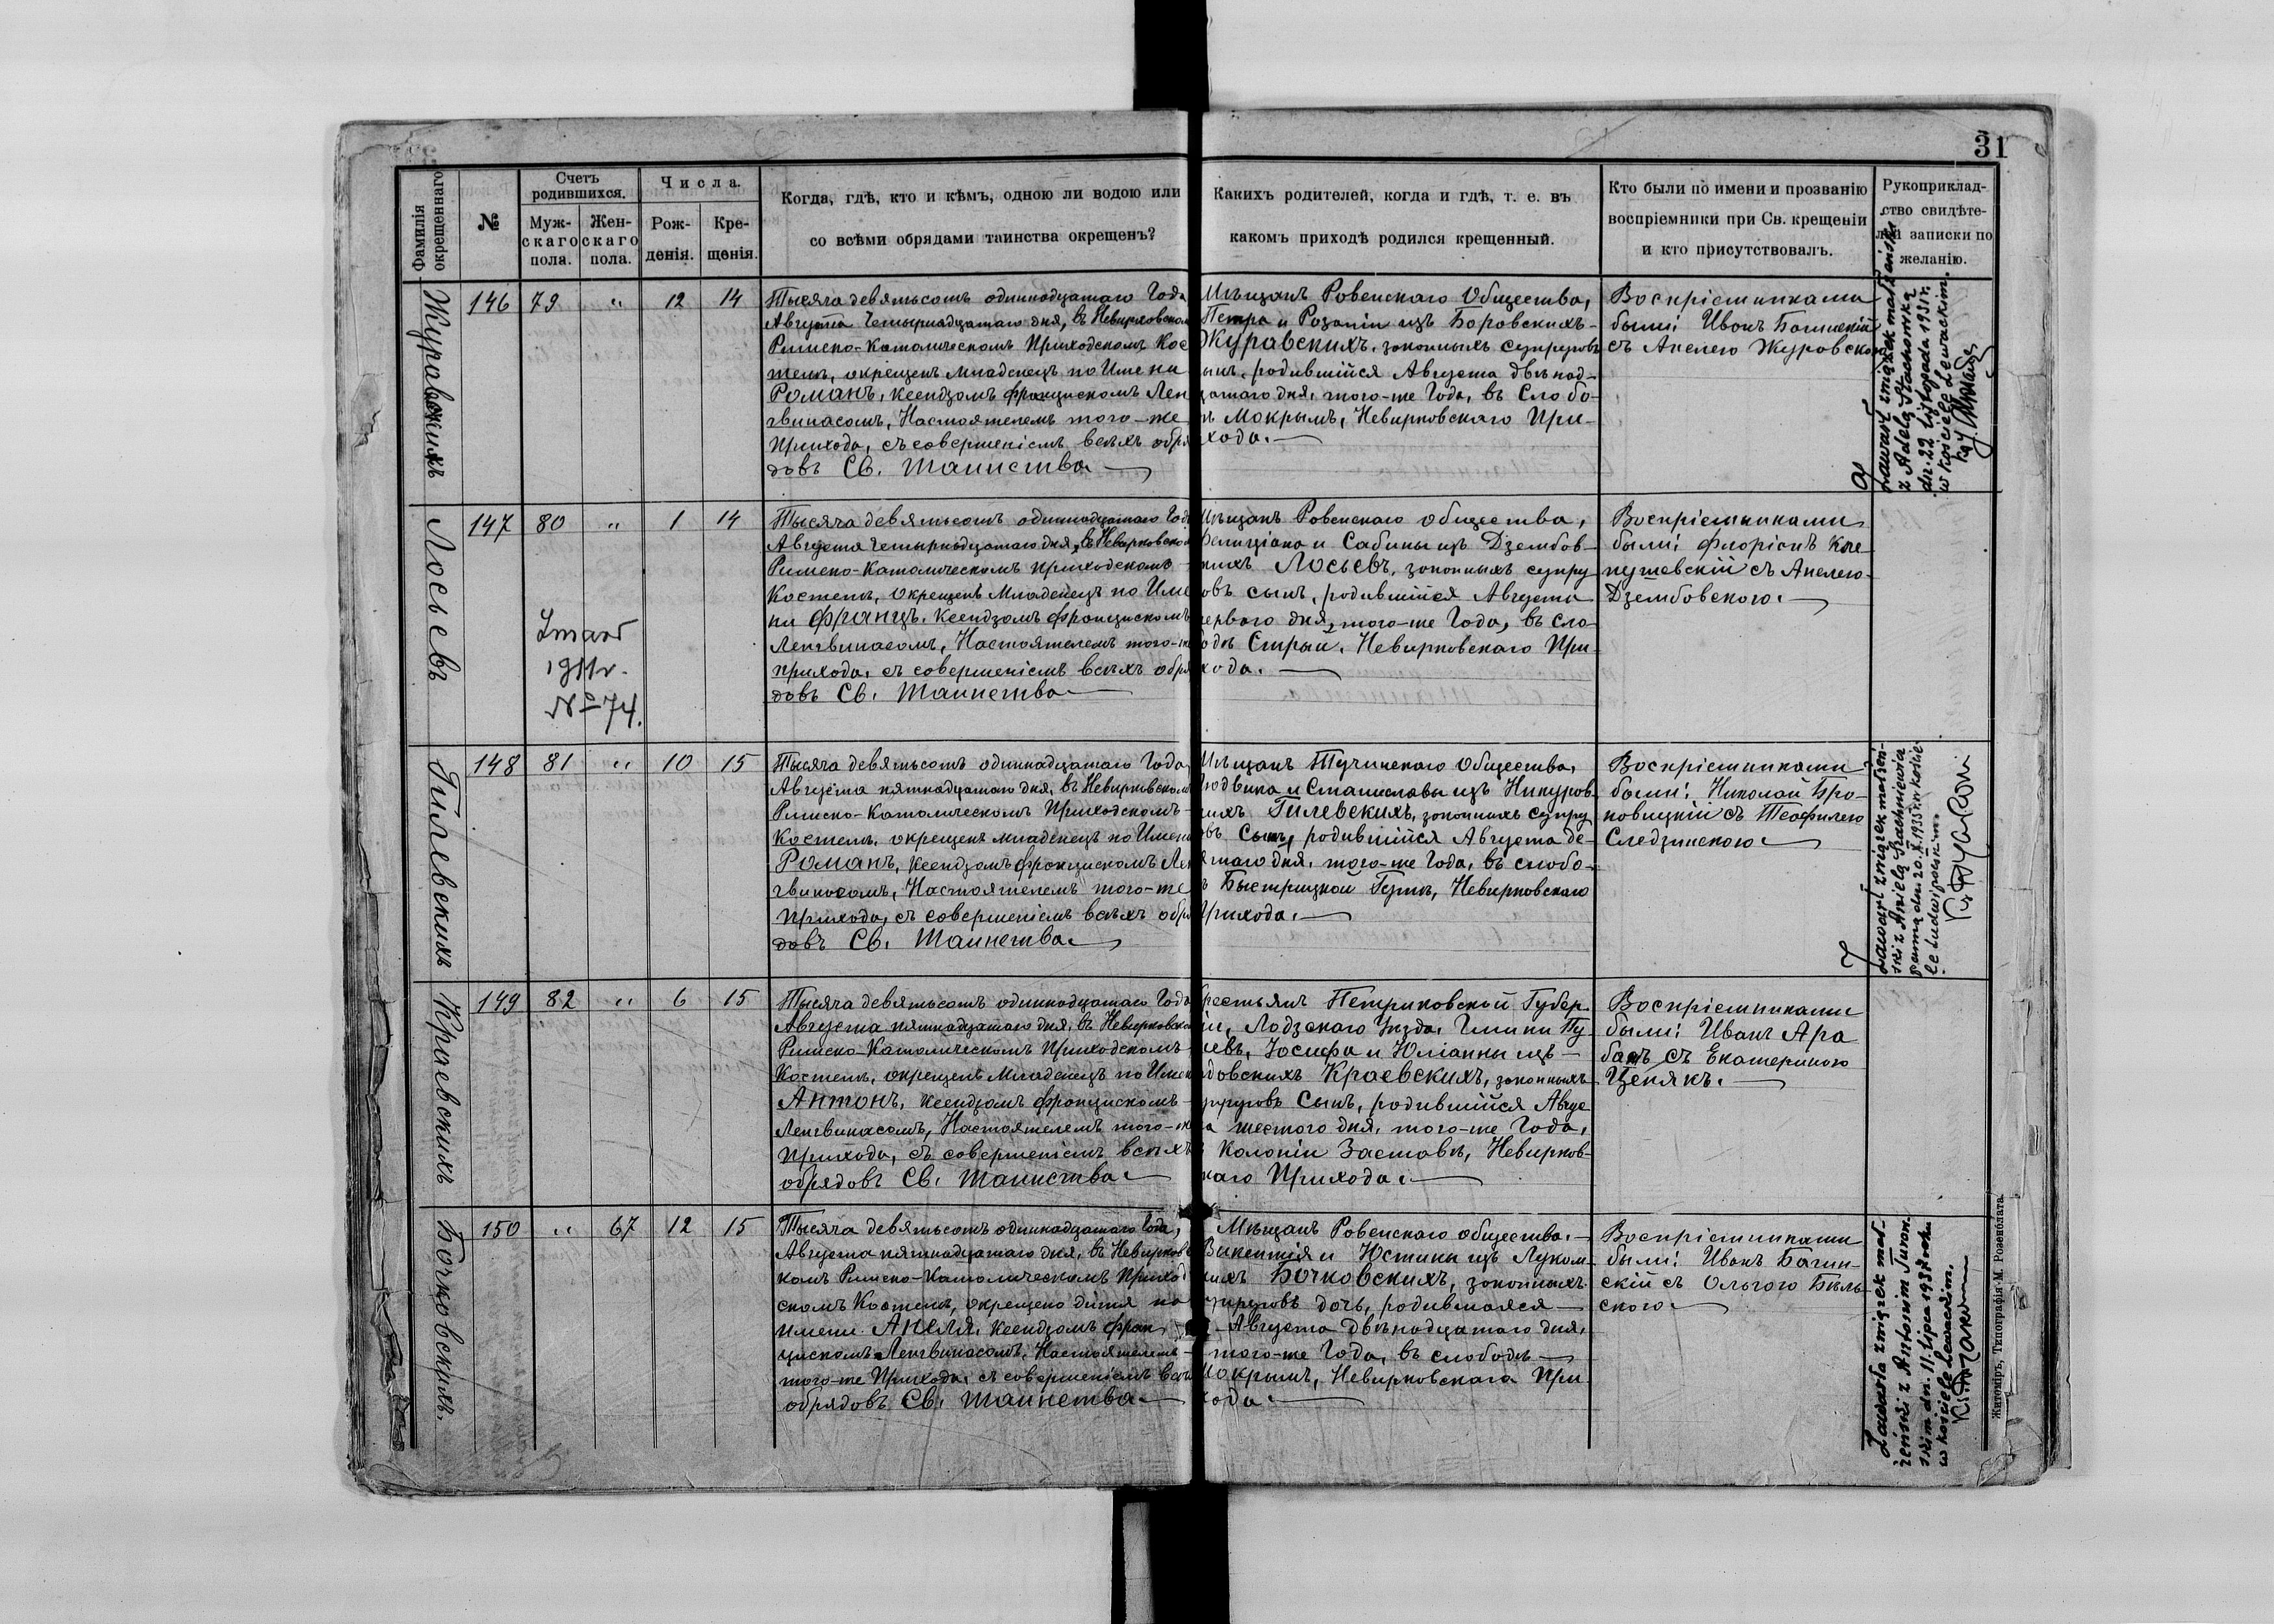 31
Фамилія окрещеннаго
№
Счетъ родившихся.
Мужскаго пола.
Женскаго пола.
Числа.
Рожденія.
Крещенія.
Когда, гдѣ, кто и кѣмъ, одною ли водою или
со всѣми обрядами таинства окрещенъ?
Какихъ родителей, когда и гдѣ, т. е. въ
какомъ приходѣ родился крещенный.
Кто были по имени и прозванію
воспріемники при Св. крещеніи
и кто присутствовалъ.
Рукоприклад-
ство свидѣте-
лей записки по
желанію.
146 79 " 12 14
Тысяча девятьсотъ одиннадцатаго Года
Августа четырнадцатаго дня, въ Невирковском
Римско-Католическомъ Приходскомъ Кос
телѣ, окрещенъ младенецъ по Имени
Романъ, Ксендзомъ Францискомъ Лен
гвинасомъ, Настоятелемъ того-же
Прихода, съ совершеніемъ всѣхъ обря
довъ Св. Таинства
Мѣщанъ Ровенскаго Общества,
Петра и Розаліи изъ Боровскихъ-
Журавскихъ, законныхъ супруговъ
сынъ, родившійся Августа двѣнад-
цатаго дня, того-же Года, въ Слобо-
дѣ Мокрымъ, Невирковскаго При-
хода.
Воспріемниками
были: Иванъ Багинскій
съ Анелею Журовскою
Zawarł związek małżeński
z Adelą Stachowską
dn. 22 listopada 1931 r.
w kościele Lewackim.
Лосьевъ
147 80 " 1 14
Zmarł
1911 r.
№ 74.
Тысяча девятьсотъ одиннадцатаго Года
Августа четырнадцатаго дня, въ Невирковском
Римско-Католическомъ Приходскомъ
Костелѣ, окрещенъ Младенецъ по Име
ни Францъ, Ксендзомъ Францискомъ
Ленгвинасомъ, Настоятелемъ того-же
прихода, съ совершеніемъ всѣхъ обря
довъ Св. Таинства
Мѣщанъ Ровенскаго общества,
Фелиціана и Сабины изъ Дзембов-
скихъ Лосьевъ, законныхъ супру
говъ сынъ, родившійся Августа
перваго дня, того-же Года, въ сло-
бодѣ Стрый, Невирковскаго При-
хода.
Воспріемниками
были: Флоріанъ
съ Анелею
Дзембовскою.
Гилевскихъ
148 81 " 10 15
Тысяча девятьсотъ одиннадцатаго Года
Августа пятнадцатаго дня, въ Невирковскомъ
Римско-Католическомъ Приходскомъ
Костелѣ, окрещенъ младенецъ по Имени
Романъ, Ксендзомъ Францискомъ Лен
гвинасомъ, Настоятелемъ того-же
Прихода, съ совершеніемъ всѣхъ обря
довъ Св. Таинства
Мѣщанъ Тучинскаго Общества,
Людвика и Станиславы изъ
Гилевскихъ, законныхъ супру
говъ Сынъ, родившійся Августа де-
сятаго дня, того-же Года, въ слобо-
дѣ Быстрицкой Гутѣ, Невирковскаго
Прихода.
Воспріемниками
были: Николай Бро-
новицкій съ Теофилею
Следзинскою
Zawarł związek małżeń-
ski z Anielą
w kościele
Ludwipolskim.
Краевскихъ
149 82 " 6 15
Тысяча девятьсотъ одиннадцатаго Года
Августа пятнадцатаго дня, въ Невирковском
Римско-Католическомъ Приходскомъ
Костелѣ, окрещенъ Младенецъ по Имени
Антонъ, Ксендзомъ Францискомъ
Ленгвинасомъ, Настоятелемъ того-же
Прихода, съ совершеніемъ всѣхъ
обрядовъ Св. Таинства
Крестьянъ Петриковской Губер-
ніи, Лодзскаго Уѣзда, Гмины Пу-
Іосифа и Юліанны изъ
Краевскихъ, законныхъ
супруговъ Сынъ, родившійся Авгус
та шестого дня, того-же Года,
въ Колоніи Заставѣ, Невирков-
скаго Прихода.
Воспріемниками
были: Иванъ Ара
басъ съ Екатериною
Ценякъ.
Бочковскихъ.
150 " 67 12 15
Тысяча девятьсотъ одиннадцатаго Года,
Августа пятнадцатаго дня, въ Невирковс
комъ Римско-Католическомъ Приход
скомъ Костелѣ, окрещено дитя по
имени Анеля, Ксендзомъ Фран
цискомъ Ленгвинасомъ, Настоятелемъ
того-же Прихода, съ совершеніемъ всѣхъ
обрядовъ Св. Таинства
Мѣщанъ Ровенскаго общества,
Викентія и Юстины изъ Луком-
скихъ Бочковскихъ, законныхъ
супруговъ дочь, родившаяся
Августа двѣнадцатаго дня,
того-же Года, въ слободѣ
Мокрымъ, Невирковскаго При
хода.
Воспріемниками
были: Иванъ Багин-
скій съ Ольгою Бѣль
скою
Zawarła związek mał-
żeński z Antonim
dn. 11. lipca
w kościele Lewackim.
Житоміръ, Типографія М. Розенблата.